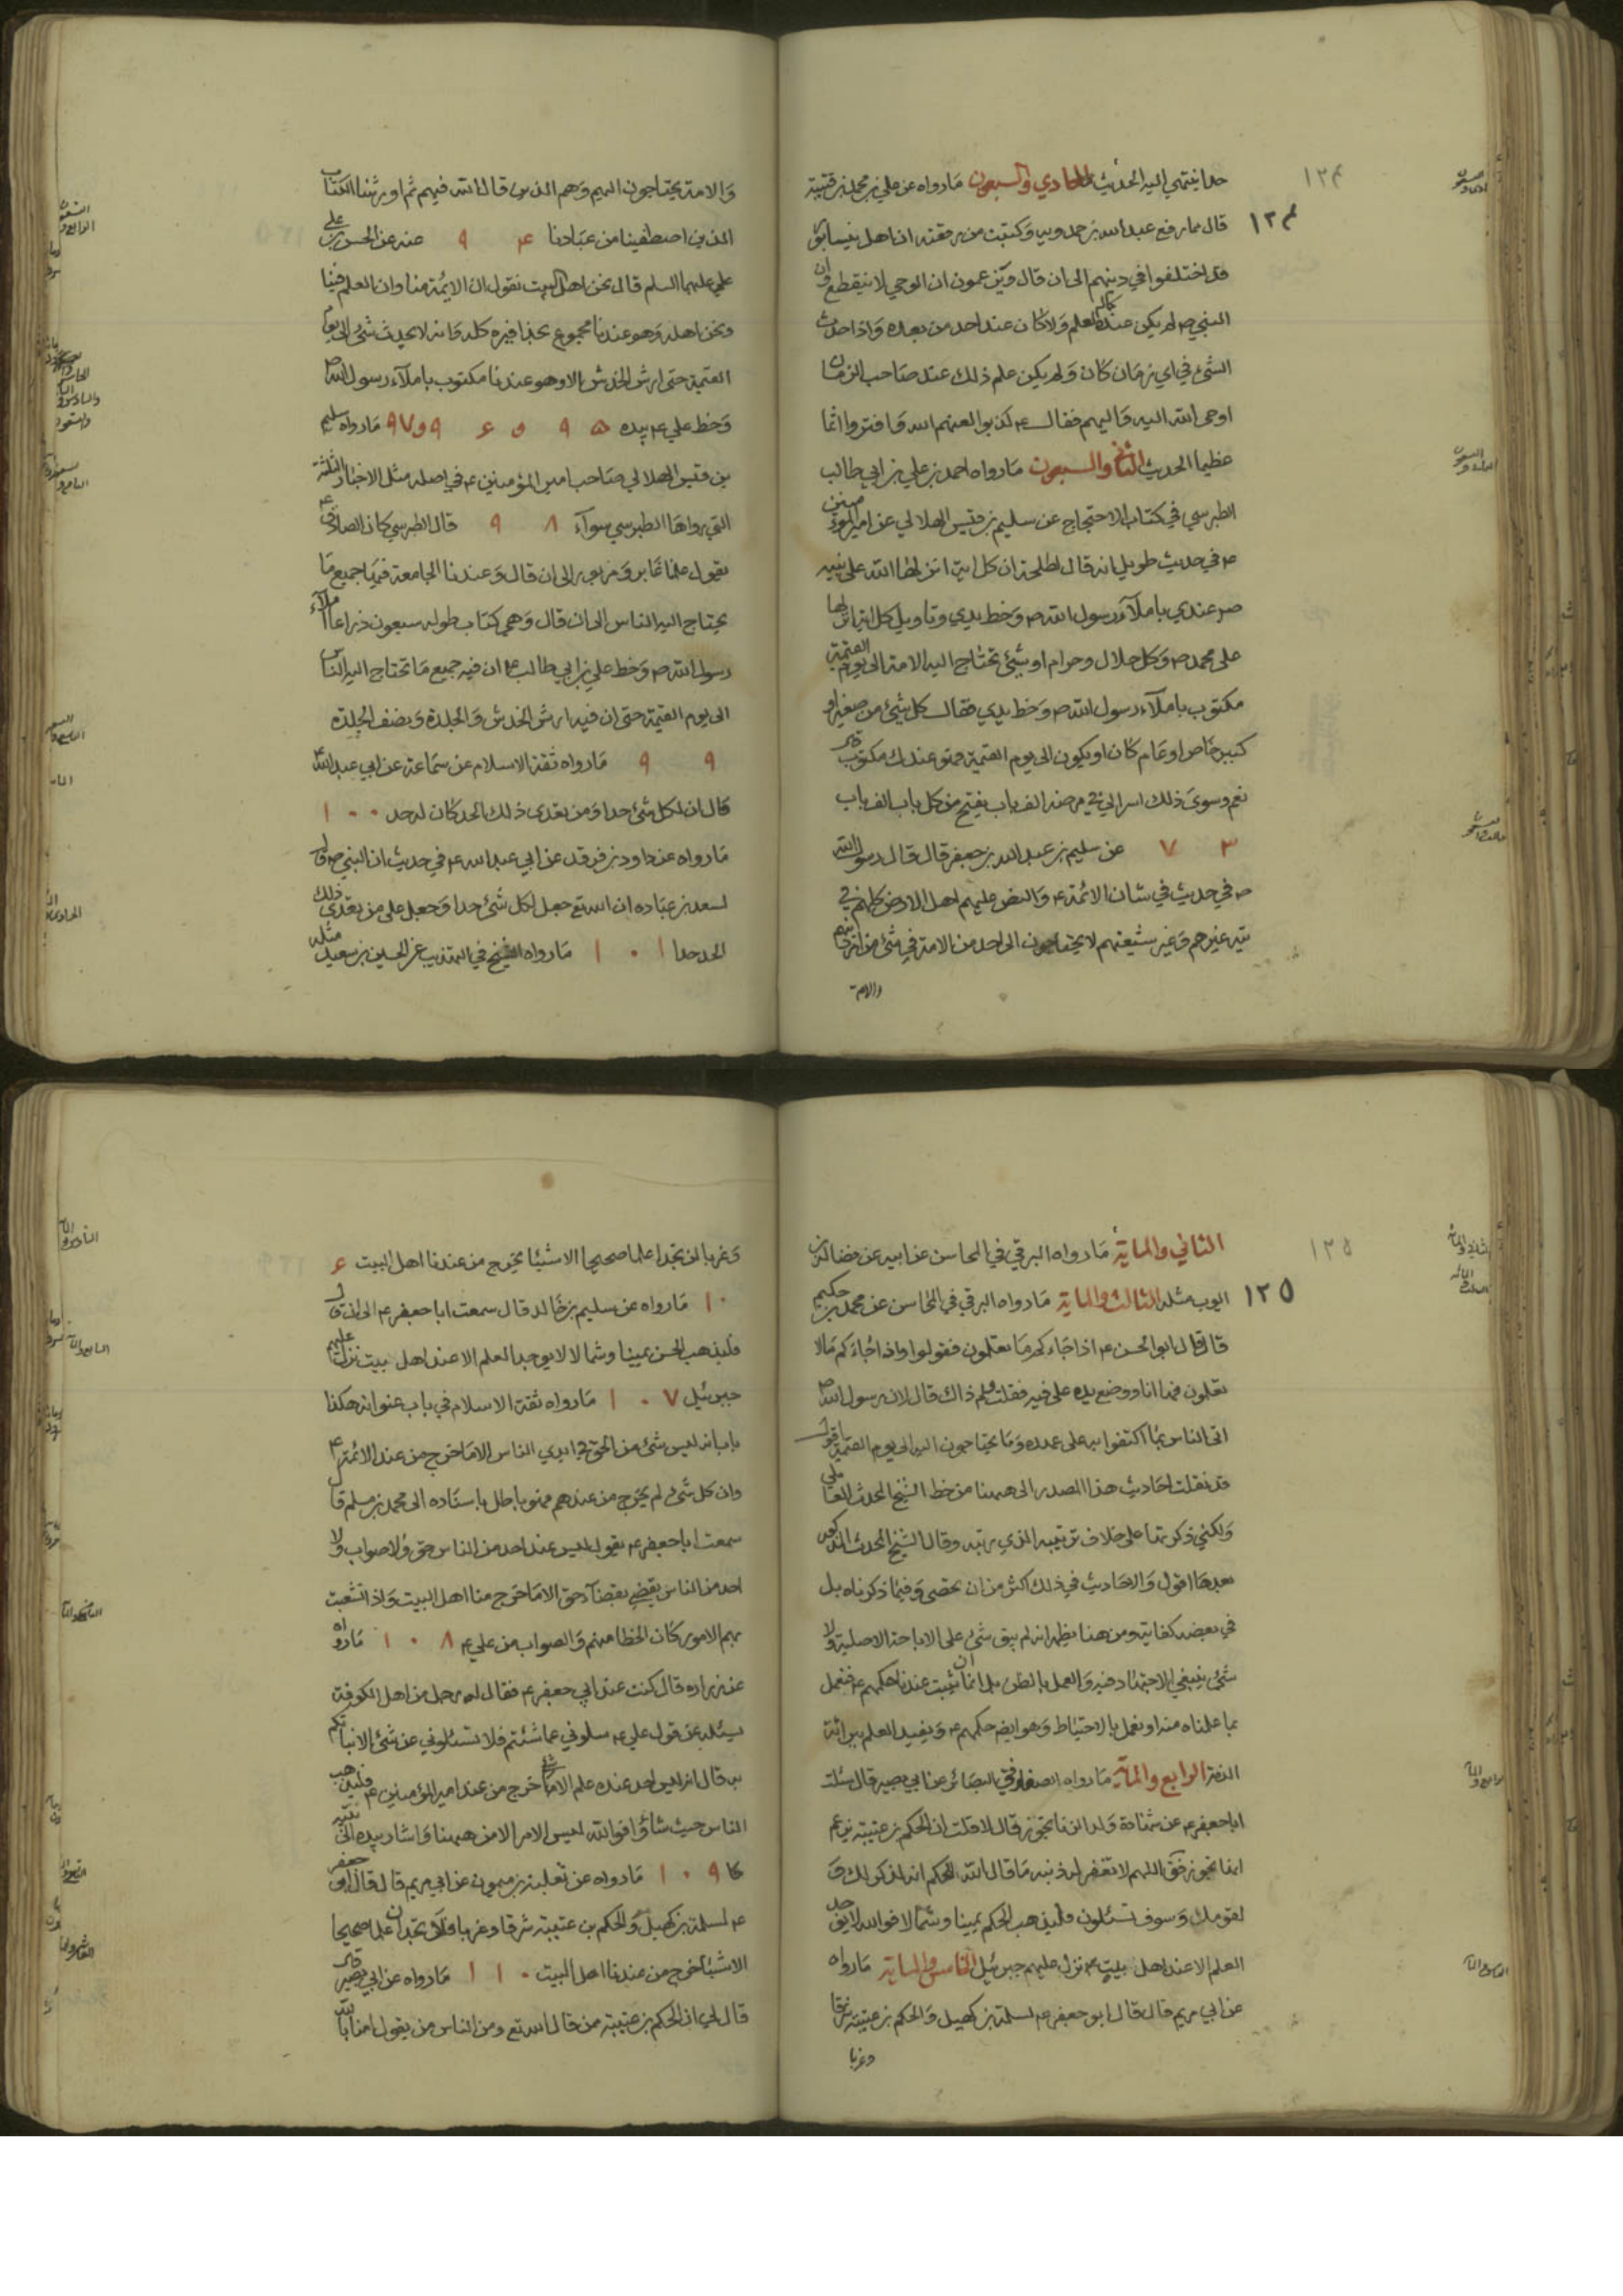 حدا ينتهي اليه الحديث الحادي والسبعون مارواه عن علي بن محمد بن قتيبة
قال مما رفع عبد الله بن حمدويه وكتبت من رقعته ان اهل نيسابور
قد اختلفوا في دينهم الى ان قال ويزعمون ان الوحي لا ينقطع وان
النبي ص لم يكن عنده كمال العلم ولا كان عند احد من بعده واذا حدث
الشئ في اي زمان كان ولم يكن علم ذلك عند صاحب الزمان
اوحى الله اليه واليهم فقال ع كذبوا لعنهم الله وافتروا اثما
عظيما الحديث الثاني والسبعون مارواه احمد بن علي بن ابي طالب
الطبرسي في كتاب الاحتجاج عن سليم بن قيس الهلالي عن امير المؤمنين
ع في حديث طويل انه قال لطلحة ان كل اية انزلها الله على نبيه
ص عندي باملاء رسول الله ص وخط يدي وتاويل كل اية انزلها
على محمد ص وكل حلال وحرام او شئ تحتاج اليه الامة الى يوم القيمة
مكتوب باملاء رسول الله ص وخط يدي فقال كل شئ من صغير او
كبير خاص او عام كان او يكون الى يوم القيمة فهو عندك مكتوب قال
نعم وسوى ذلك اسر الي في مرضه الف باب يفتح من كل باب الف باب
٧٣ عن سليم بن عبد الله بن جعفر قال قال رسول الله
ص في حديث في شان الائمة ع والنص عليهم اهل الارض كلهم في
تيه غيرهم وغير شيعتهم لا يحتاجون الى احد من الامة في شئ من امر دينهم
والامة
والامة يحتاجون اليهم وهم الذين قال الله فيهم ثم اورثنا الكتاب
الذين اصطفينا من عبادنا ٩۴ عنه عن الحسن بن علي
علي عليهما السلم قال نحن اهل البيت نقول ان الائمة منا وان العلم فينا
ونحن اهله وهو عندنا مجموع بحذافيره كله وانه لا يحدث شئ الى يوم
القيمة حتى ارش الخدش الا وهو عندنا مكتوب باملاء رسول الله ص
وخط علي ع بيده ٩۵ و ٩۶ و ٩٧ مارواه سليم
بن قيس الهلالي صاحب امير المؤمنين ع في اصله مثل الاخبار الثلثة
التي رواها الطبرسي سواء ٩٨ قال الطبرسي كان الصادق ع
يقول علمنا غابر ومزبور الى ان قال وعندنا الجامعة فيها جميع ما
يحتاج اليه الناس الى ان قال وهي كتاب طوله سبعون ذراعا املاء
رسول الله ص وخط علي بن ابي طالب ع ان فيه جميع ما تحتاج اليه الناس
الى يوم القيمة حتى ان فيه ارش الخدش والجلدة ونصف الجلدة
٩٩ مارواه ثقة الاسلام عن سماعة عن ابي عبد الله ع
قال ان لكل شئ حدا ومن تعدى ذلك الحد كان له حد ١٠٠
مارواه عن داود بن فرقد عن ابي عبد الله ع في حديث ان النبي ص قال
لسعد بن عباده ان الله تع جعل لكل شئ حدا وجعل على من تعدى ذلك
الحد حدا ١٠١ مارواه الشيخ في التهذيب عن الحسين بن سعيد مثله
الثاني والماية مارواه البرقي في المحاسن عن ابيه عن فضالة بن
ايوب مثله الثالث والماية مارواه البرقي في المحاسن عن محمد بن حكيم
قال قال ابو الحسن ع اذا جاءكم ما تعلمون فقولوا واذا جاءكم ما لا
تعلمون فها انا ووضع يده على فيه فقلت ولم ذاك قال لان رسول الله ص
اتى الناس بما اكتفوا به على عهده وما يحتاجون اليه الى يوم القيمة اقول
قد نقلت احاديث هذا المصدر الى ههنا من خط الشيخ المحدث العاملي
ولكني ذكرتها على خلاف ترتيبه الذي رتبه وقال الشيخ المحدث المذكور
بعدها اقول والاحاديث في ذلك اكثر من ان تحصى وفيما ذكرناه بل
في بعضه كفاية ومن هنا يظهر انه لم يبق شئ على الاباحة الاصلية ولا
شئ ينبغي الاجتهاد فيه والعمل بالظن بل اما ان ثبت عندنا حكمهم ع فنعمل
بما علمناه منه او نعمل بالاحتياط وهو ايضا حكمهم ع ويفيد العلم ببرائة
الذمة الرابع والماية مارواه الصفار في البصائر عن ابي بصير قال سئلت
ابا جعفر ع عن شهادة ولد الزنا تجوز قال لا فقلت ان الحكم بن عتيبة يزعم
انها تجوز فق اللهم لا تغفر له ذنبه ما قال الله للحكم انه لذكر لك و
لقومك وسوف تسئلون فليذهب الحكم يمينا وشمالا فوالله لا يوجد
العلم الا عند اهل بيت ع نزل عليهم جبرئيل الخامس والماية مارواه
عن ابي مريم قال قال ابو جعفر ع لسلمة بن كهيل والحكم بن عتيبة شرقا
وغربا
وغربا لن تجدا علما صحيحا الا شيئا يخرج من عندنا اهل البيت ۶
١٠ مارواه عن سليم بن خالد قال سمعت ابا جعفر ع الى ان قال
فليذهب الحسن يمينا وشمالا لا يوجد العلم الا عند اهل بيت نزل عليهم
جبرئيل ١٠٧ مارواه ثقة الاسلام في باب عنوانه هكذا
باب انه ليس شئ من الحق في ايدي الناس الا ما خرج من عند الائمة ع
وان كل شئ لم يخرج من عندهم فهو باطل باسناده الى محمد بن مسلم قال
سمعت ابا جعفر ع يقول ليس عند احد من الناس حق ولا صواب ولا
احد من الناس يقضي بقضاء حق الا ما خرج منا اهل البيت واذا تشعبت
بهم الامور كان الخطا منهم والصواب من علي ع ١٠٨ مارواه
عن زراره قال كنت عند ابي جعفر ع فقال له رجل من اهل الكوفة
يسئله عن قول علي ع سلوني عما شئتم فلا تسئلوني عن شئ الا نباتكم
به قال انه ليس احد عنده علم شئ الا خرج من عند امير المؤمنين ع فليذهب
الناس حيث شاؤا فوالله ليس الامر الا من ههنا واشار بيده الى بيته
١٠٩ مارواه عن ثعلبة بن ميمون عن ابي مريم قال قال ابو جعفر
ع لسلمة بن كهيل والحكم بن عتيبة شرقا وغربا فلا تجدان علما صحيحا
الا شيئا خرج من عندنا اهل البيت ١١٠ مارواه عن ابي بصير قال
قال لي ان الحكم بن عتيبة ممن قال الله تع ومن الناس من يقول امنا بالله